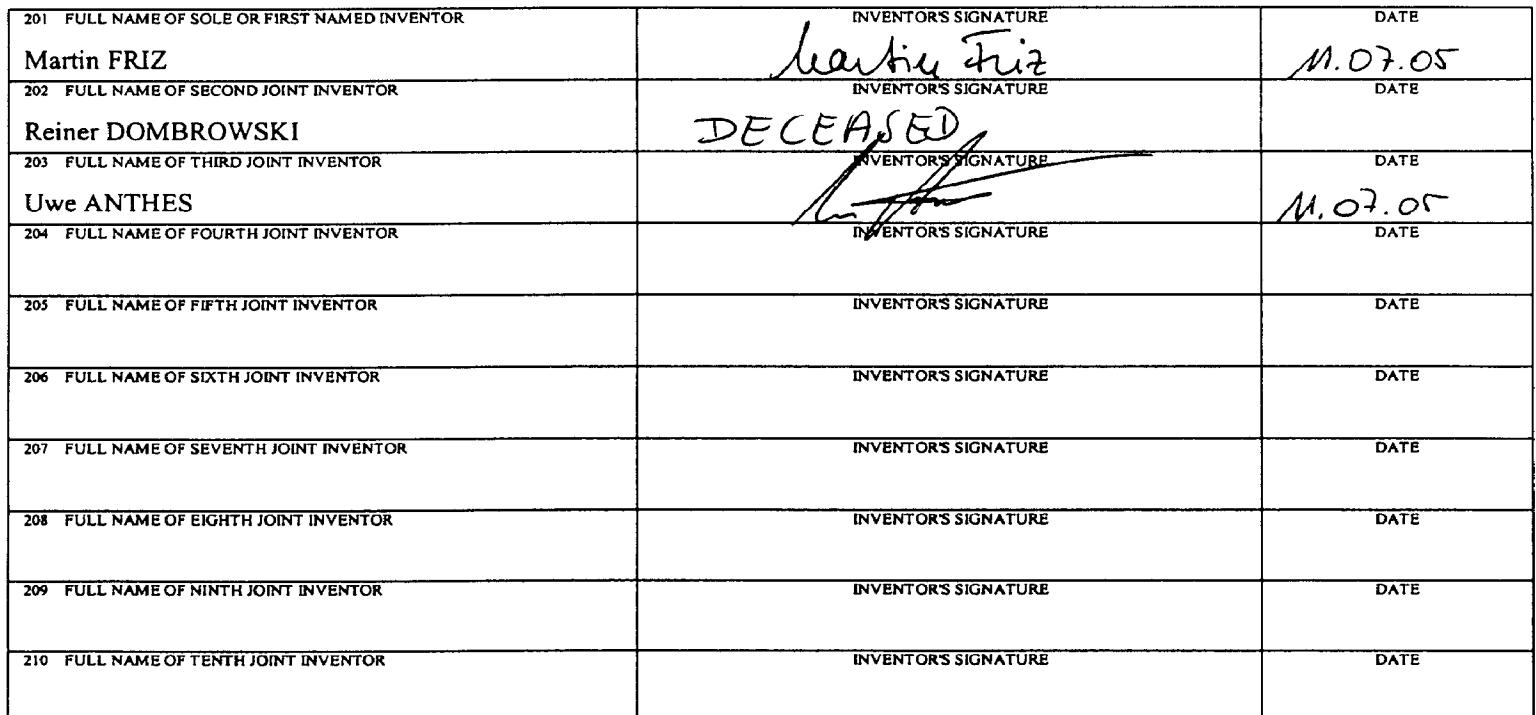 201 FULL NAME OF SOLE OR FIRST NAMED INVENTOR INVENTOR'S SIGNATURE DATE
Martin FRIZ Martin Friz 11.07.05
202 FULL NAME OF SECOND JOINT INVENTOR INVENTOR'S SIGNATURE DATE
Reiner DOMBROWSKI DECEASED
203 FULL NAME OF THIRD JOINT INVENTOR INVENTOR'S SIGNATURE DATE
Uwe ANTHES 11.07.05
204 FULL NAME OF FOURTH JOINT INVENTOR INVENTOR'S SIGNATURE DATE
205 FULL NAME OF FIFTH JOINT INVENTOR INVENTOR'S SIGNATURE DATE
206 FULL NAME OF SIXTH JOINT INVENTOR INVENTOR'S SIGNATURE DATE
207 FULL NAME OF SEVENTH JOINT INVENTOR INVENTOR'S SIGNATURE DATE
208 FULL NAME OF EIGHTH JOINT INVENTOR INVENTOR'S SIGNATURE DATE
209 FULL NAME OF NINTH JOINT INVENTOR INVENTOR'S SIGNATURE DATE
210 FULL NAME OF TENTH JOINT INVENTOR INVENTOR'S SIGNATURE DATE